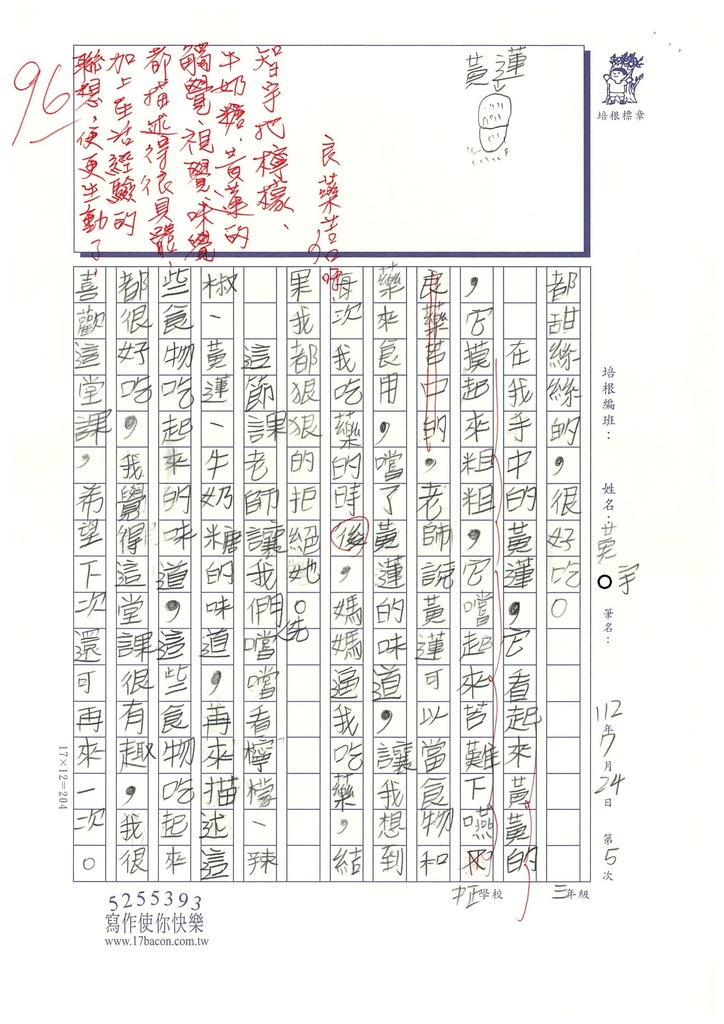 黃蓮
培根標章
96
良藥苦口呀!
智宇把檸檬、
牛奶糖、黃蓮的
觸覺、視覺、味覺
都描述得很具體,
加上生活經驗的
聯想,便更生動了!
培根編班:
姓名:黃○宇
筆名:
112年7月24日
第5次
都甜絲絲的,很好吃。
在我手中的黃蓮,它看起來黃黃的
,它摸起來粗粗,它嚐起來苦難下嚥
良藥苦中的,老師說黃蓮可以當食物和
藥來食用,嚐了黃蓮的味道,讓我想到
每次我吃藥的時後,媽媽逼我吃藥,結
果我都狠狠的拒絕她。
這節課老師讓我們先嚐嚐看檸檬、辣
椒、黃蓮、牛奶糖的味道,再來描述這
些食物吃起來的味道,這些食物吃起來
都很好吃,我覺得這堂課很有趣,我很
喜歡這堂課,希望下次還可再來一次。
17×12=204
中正學校
三年級
5255393
寫作使你快樂
www.17bacon.com.tw